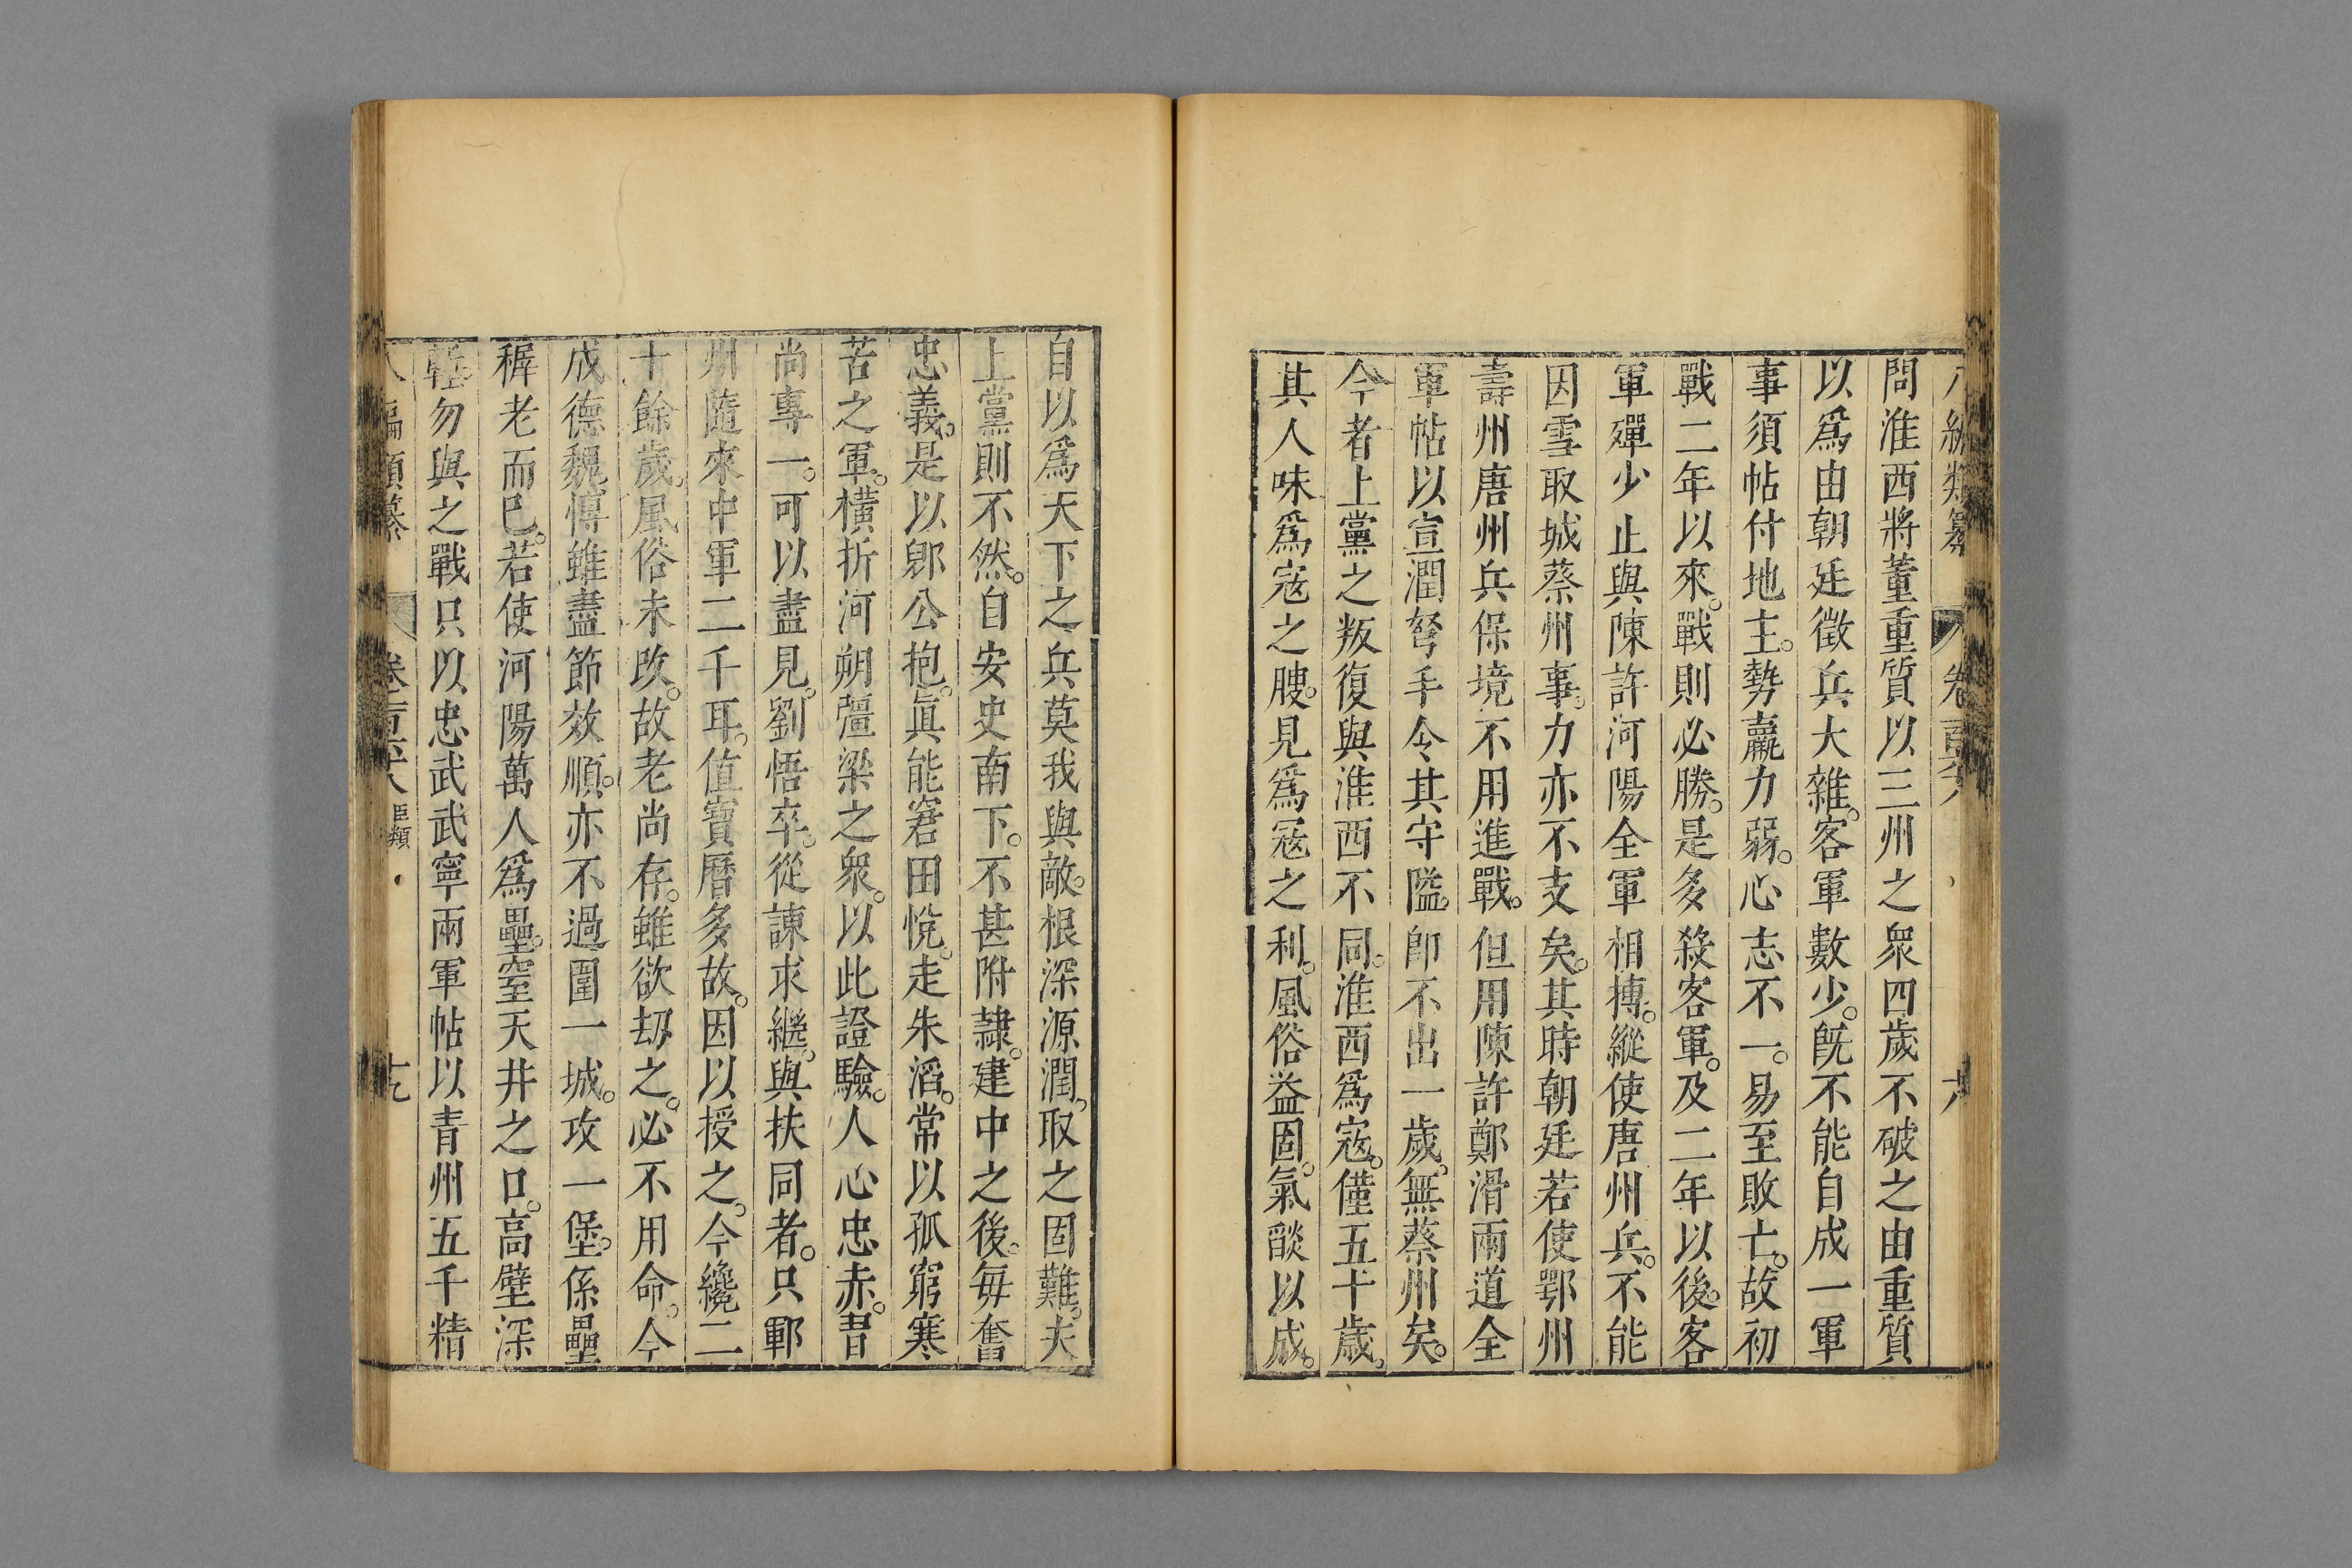 問淮西將董重質以三州之衆四歲不破之由重質
以爲由朝廷徵兵大雜。客軍數少。旣不能自成一軍
事須帖付地主。勢羸力弱。心志不一。易至敗亡。故初
戰二年以來。戰則必勝。是多殺客軍。及二年以後。客
軍殫少止與陳許河陽全軍相搏。縱使唐州兵。不能
因雪取城蔡州事。力亦不支矣。其時朝廷若使鄂州
壽州唐州兵保境不用進戰。但用陳許鄭滑兩道全
軍帖以宣潤弩手令其守隘。卽不出一歲。無蔡州矣。
今者上黨之叛復與淮西不同。淮西爲寇。僅五十歲。
其人味爲寇之腴。見爲寇之利。風俗益固。氣燄以成。
自以爲天下之兵莫我與敵。根深源潤。取之固難。夫
上黨則不然。自安史南下。不甚附隷。建中之後。每奮
忠義。是以郎公抱。眞能窘田悅。走朱滔。常以孤窮寒
苦之軍。橫折河朔彊梁之衆。以此證驗。人心忠赤。習
尚專一。可以盡見。劉悟卒。從諫求繼。與扶同者。只鄆
州隨來中軍二千耳。値寶曆多故。因以授之。今纔二
十餘歲。風俗未改。故老尚存。雖欲刧之。必不用命。今
成德魏博雖盡節效順。亦不過圍一城。攻一堡。係壘
穉老而已。若使河陽萬人爲壘。窒天井之口。高壁深
塹。勿與之戰只以忠武武寧兩軍帖以青州五千精
八編類纂 卷二百六 臣類 十九